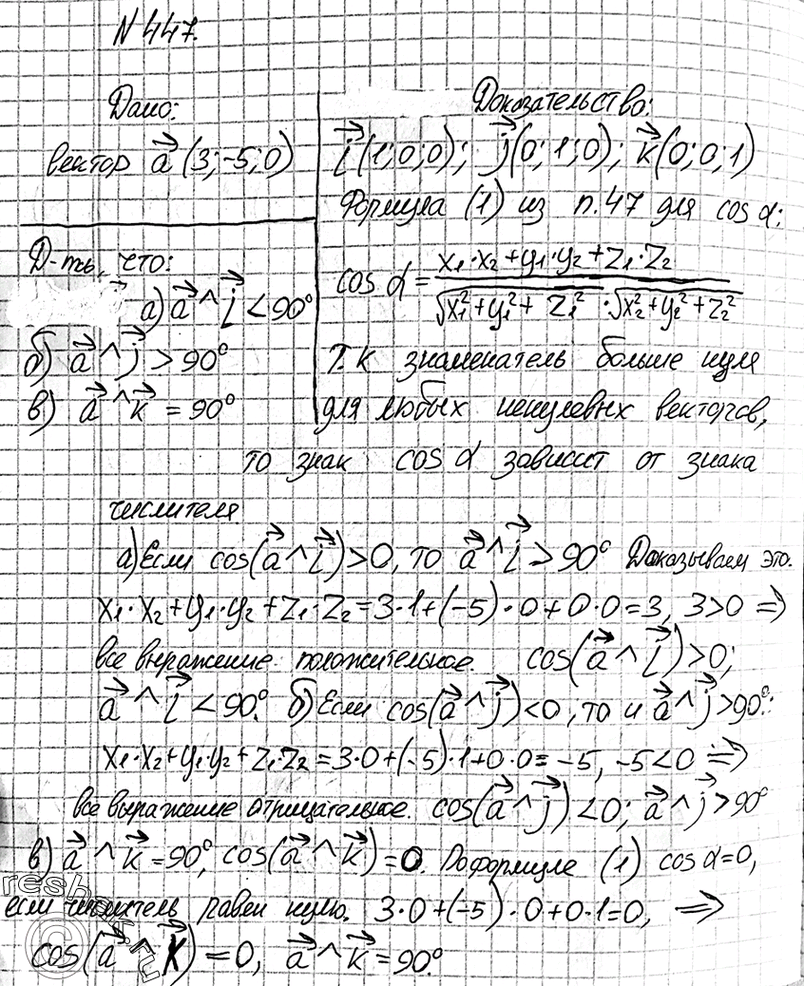 N 447.
Дано:
вектор a⃗ (3; -5; 0)
Д-ть, что:
а) a⃗ ^ i⃗ < 90°
б) a⃗ ^ j⃗ > 90°
в) a⃗ ^ k⃗ = 90°
Доказательство:
i⃗ (1; 0; 0); j⃗ (0; 1; 0); k⃗ (0; 0; 1)
Формула (1) из п.47 для cos α:
cos α = (x₁·x₂ + y₁·y₂ + z₁·z₂) / (√(x₁² + y₁² + z₁²) · √(x₂² + y₂² + z₂²))
Т.к знаменатель больше нуля
для любых ненулевых векторов,
то знак cos α зависит от знака
числителя
а) Если cos(a⃗ ^ i⃗) > 0, то a⃗ ^ i⃗ > 90° Доказываем это.
x₁·x₂ + y₁·y₂ + z₁·z₂ = 3·1 + (-5)·0 + 0·0 = 3, 3 > 0 ⇒
все выражение положительное. cos(a⃗ ^ i⃗) > 0;
a⃗ ^ i⃗ < 90°. б) Если cos(a⃗ ^ j⃗) < 0, то и a⃗ ^ j⃗ > 90°:
x₁·x₂ + y₁·y₂ + z₁·z₂ = 3·0 + (-5)·1 + 0·0 = -5, -5 < 0 ⇒
все выражение отрицательное. cos(a⃗ ^ j⃗) < 0; a⃗ ^ j⃗ > 90°
в) a⃗ ^ k⃗ = 90°, cos(a⃗ ^ k⃗) = 0. По формуле (1) cos α = 0,
если числитель равен нулю. 3·0 + (-5)·0 + 0·1 = 0, ⇒
cos(a⃗ ^ k⃗) = 0, a⃗ ^ k⃗ = 90°.